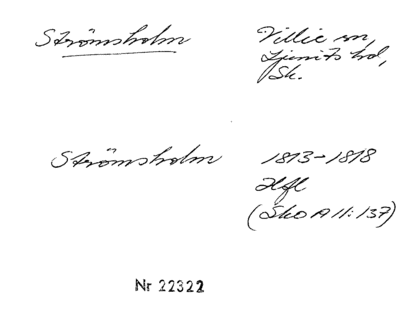 Strömsholm
Villie sn,
Ljunits hd,
Sk.
Strömsholm
1813-1818
Hfl
(Sko A II:137)
Nr 22322